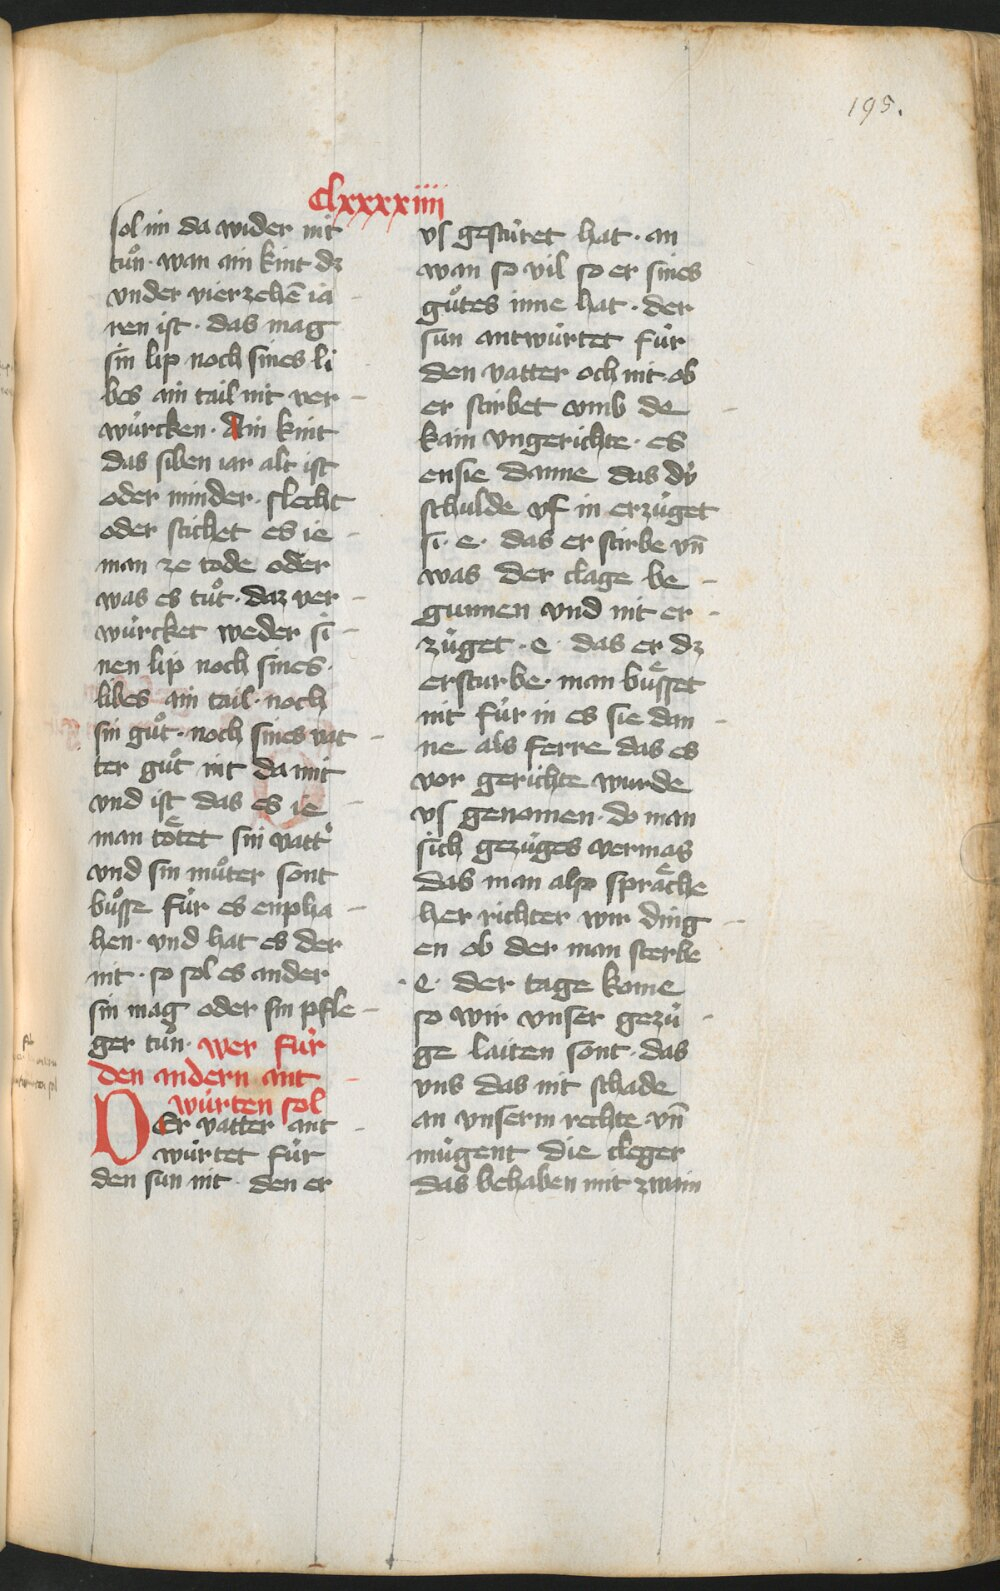 195.
Clxxxxiiii
sol im da wider nit
tuͦn · wan ain kint dz
vnder vierzehē ia
ren ist · das mag
sin lip noch sines li
bes ain tail nit ver
wúrcken · Ain kint
das siben iar alt ist
oder minder · slecht
oder stichet es ie
man ze tode oder
was es tuͦt · daz ver
wúrcket weder si
nen lip noch sines
libes ain tail · noch
sin guͦt · noch sines vat
ter guͦt nit da mit
vnd ist das es ie
man toͤtet sin vatt'
vnd sin muͦter sont
buͦsse fúr es enpha
hen · vnd hat es der
nit · so sol es ander
sin mag oder sin pfle
ger tuͦn · wer fúr
den andern ant
wúrten sol
DEr vatter ant
wúrtet fúr
den sun nit den er
vs gestúret hat · an
wan so vil so er sines
guͦtes inne hat · der
sun antwúrtet fúr
den vatter och nit · ob
er stirbet vmb de
kain vngerichte · es
ensie danne das dý
schulde vf in erzúget
si · e · das er stirbe vn̄
was der clage be
gunnen vnd nit er
zúget · e · das er dz
ersturbe · man buͤsset
nit fúr in es sie dan
ne als ferre das es
vor gerichte wurde
vs genomen · do man
sich gezúges vermas
das man also spraͤche
her richter wir ding
en ob der man sterbe
· e · der tage kome
so wir vnser gezú
ge laiten sont · das
vns das nit schade
an vnserm rechte · vn̄
múgent die cleger
das behaben mit zwain